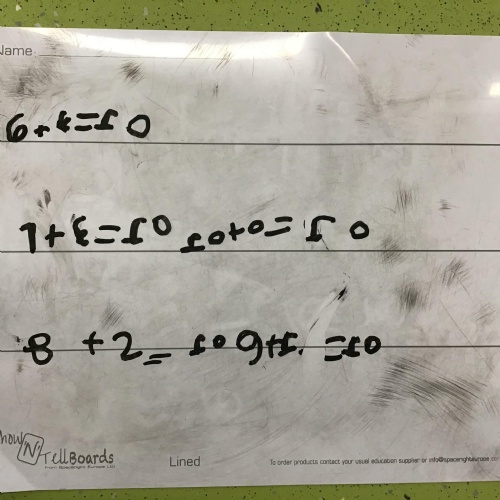 Name
6+4=10
7+3=10 10+0=10
8+2=10 9+1=10
how N TellBoards
from Spaceright Europe Ltd
Lined
To order products contact your usual education supplier or info@spacerighteurope.co